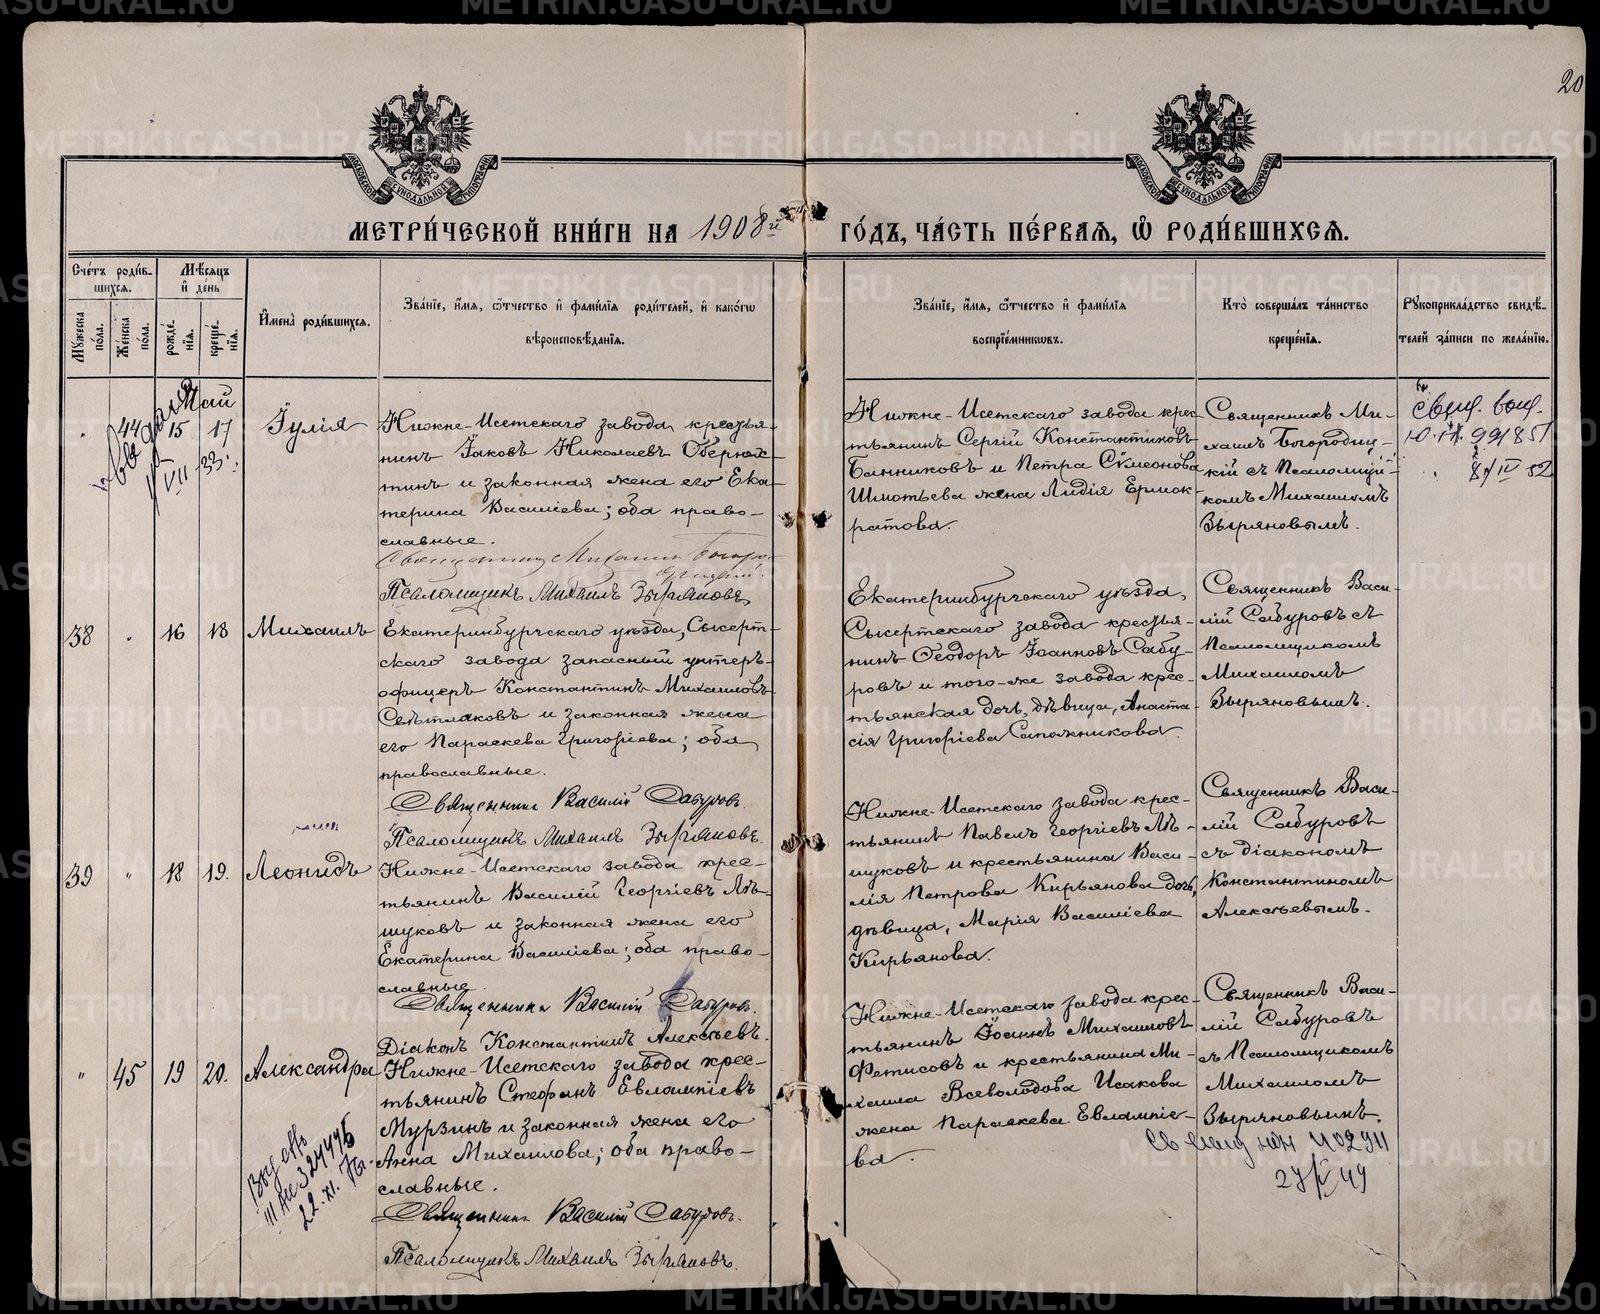 20
МОСКОВСКОЙ СѴНОДАЛЬНОЙ ТИПОГРАФІИ
МОСКОВСКОЙ СѴНОДАЛЬНОЙ ТИПОГРАФІИ
МЕТРИ́ЧЕСКОЙ КНИ́ГИ НА 1908й ГО́ДЪ, ЧА́СТЬ ПЕ́РВАЯ, Ѽ РОДИ́ВШИХСЯ.
Сче́тъ роди́в-
шихся.
Мѣ́сяцъ
и҆ де́нь
Му́жеска
по́ла.
Же́нска
по́ла.
рожде́-
нїя.
креще́-
нїя.
И҆мена̀ роди́вшихся.
Зва́нїе, и҆́мя, ѻ҆́тчество и҆ фами́лїя роди́телей, и҆ како́гѡ
вѣроисповѣ́данїя.
Зва́нїе, и҆́мя, ѻ҆́тчество и҆ фами́лїя
воспрїе́мникѡвъ.
Кто̀ соверша́лъ та́инство
креще́нїя.
Рꙋкоприкла́дство свидѣ́-
телей за́писи по жела́нїю.
Май
44 15 17 Іулія
Нижне-Исетскаго завода, крестья-
нинъ Іаковъ Николаевъ
и законная жена его Ека-
терина Василіева; оба право-
славные.
Священникъ Михаилъ Богоро-
дицкій.
Псаломщикъ Михаилъ Зыряновъ.
Нижне-Исетскаго завода крес-
тьянинъ Сергій Константиновъ
Банниковъ и Петра Сѵмеонова
жена Лидія Ермок-
ратова.
Священникъ Ми-
хаилъ Богородиц-
кій съ Псаломщи-
комъ Михаиломъ
Зыряновымъ.
38 16 18 Михаилъ
Екатеринбургскаго уѣзда, Сысерт-
скаго завода запасный унтеръ-
офицеръ Константинъ Михаиловъ
Свѣтлаковъ и законная жена
его Параскева Григоріева; оба
православные.
Священникъ Василій Сабуровъ.
Псаломщикъ Михаилъ Зыряновъ.
Екатеринбургскаго уѣзда,
Сысертскаго завода крестья-
нинъ Ѳеодоръ Іоанновъ Сабу-
ровъ и того-же завода крес-
тьянская дочь, дѣвица, Анаста-
сія Григоріева Сапожникова.
Священникъ Васи-
лій Сабуровъ съ
Псаломщикомъ
Михаиломъ
Зыряновымъ.
39 " 18 19. Леонидъ
Нижне-Исетскаго завода крес-
тьянинъ Василій Георгіевъ Лѣ-
шуковъ и законная жена его
Екатерина Василіева; оба право-
славные.
Священникъ Василій Сабуровъ.
Діаконъ Константинъ Алексѣевъ.
Нижне-Исетскаго завода крес-
тьянинъ Павелъ Георгіевъ Лѣ-
шуковъ и крестьянина Васи-
лія Петрова Кирьянова дочь,
дѣвица, Марія Василіева
Кирьянова.
Священникъ Васи-
лій Сабуровъ
съ діакономъ
Константиномъ
Алексѣевымъ.
" 45 19 20. Александра
Нижне-Исетскаго завода крес-
тьянинъ Стефанъ Евлампіевъ
Мурзинъ и законная жена его
Анна Михаилова; оба право-
славные.
Священникъ Василій Сабуровъ.
Псаломщикъ Михаилъ Зыряновъ.
Нижне-Исетскаго завода крес-
тьянинъ Іоаннъ Михаиловъ
Фетисовъ и крестьянина Ми-
хаила Всеволодова Исакова
жена Параскева Евлампіе-
ва.
Священникъ Васи-
лій Сабуровъ
съ Псаломщикомъ
Михаиломъ
Зыряновымъ.
METRIKI.GASO-URAL.RU